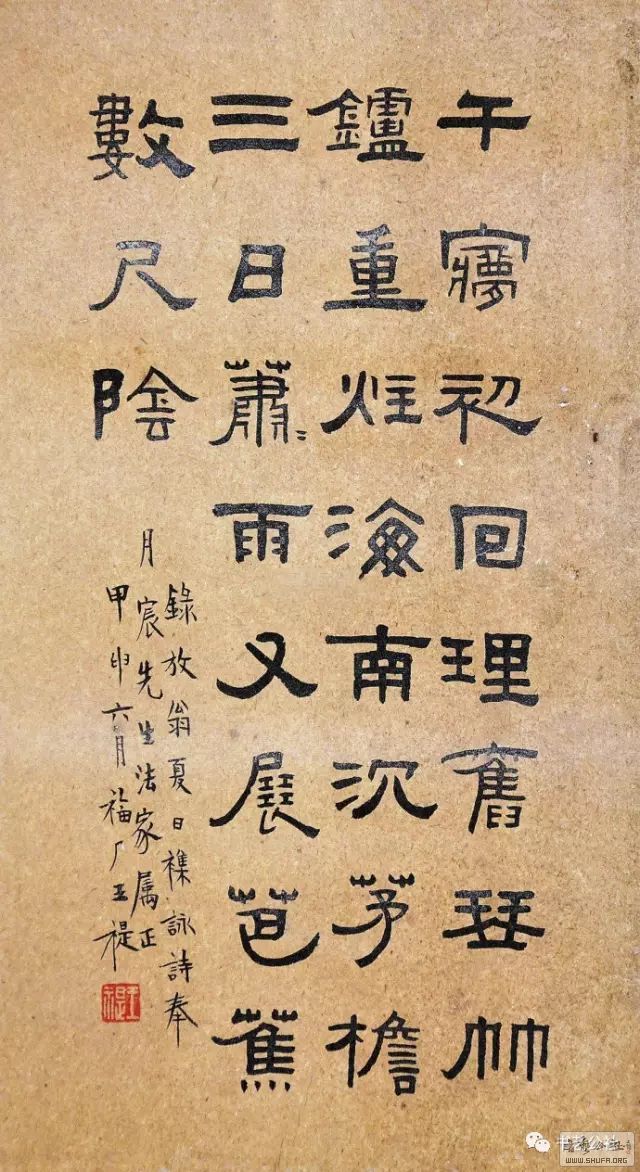 午㝱初回理舊琴竹
鑪重炷海南沉茅檐
三日蕭〻雨又展芭蕉
數尺陰
錄放翁夏日襍詠詩奉
月宸先生法家属正
甲申六月福厂王禔
王禔
WWW.SHUFA.ORG